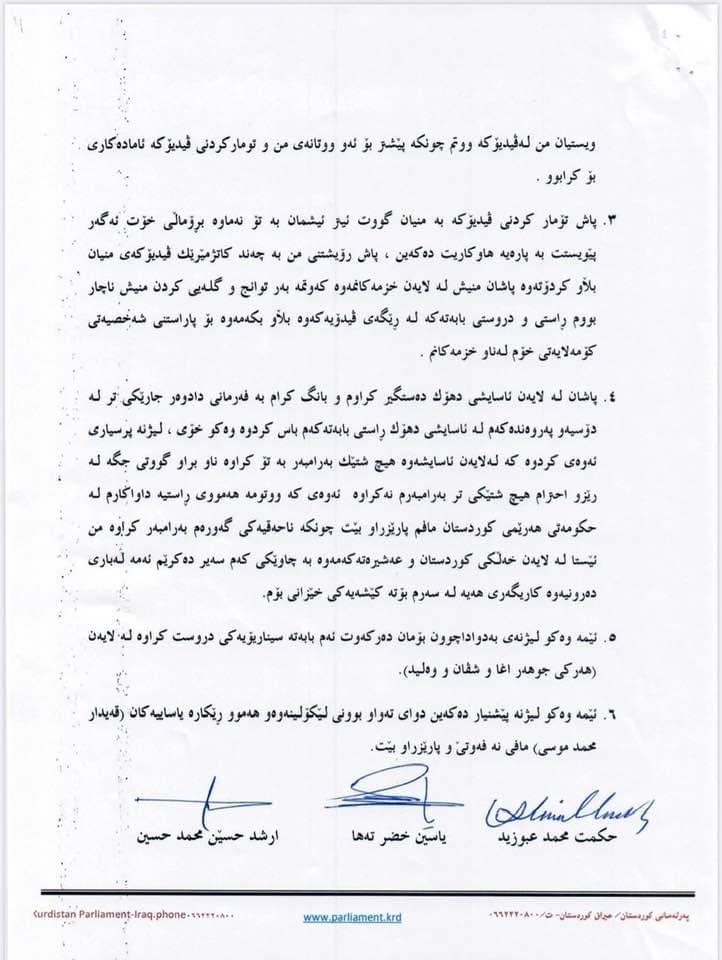 ویستیان من لەڤیدیۆکە ووتم چونکە پێشتر بۆ ئەو ووتانەی من و تومارکردنی ڤیدیۆکە ئامادەکاری
بۆ کرابوو .
٣. پاش تۆمار کردنی ڤیدیۆکە بە منیان گووت ئیتر ئیشمان بە تۆ نەماوە برۆمالی خۆت ئەگەر
پێویستت بە پارەیە هاوکاریت دەکەین ، پاش رۆیشتنی من بە چەند کاتژمێرێك ڤیدیۆکەی منیان
بڵاو کردۆتەوە پاشان منیش لە لایەن خزمەکانمەوە کەوتمە بەر توانج و گلەیی کردن منیش ناچار
بووم ڕاستی و دروستی بابەتەکە لە ڕێگەی ڤیدۆیەکەوە بڵاو بکەمەوە بۆ پاراستنی شەخصیەتی
کۆمەلایەتی خۆم لەناو خزمەکانم .
٤. پاشان لە لایەن ئاسایشی دهۆك دەستگیر کراوم و بانگ کرام بە فەرمانی دادوەر جارێکی تر لە
دۆسیەو پەروەندەکەم لە ئاسایشی دهۆك ڕاستی بابەتەکەم باس کردوە وەکو خۆی ، لیژنە پرسیاری
ئەوەی کردوە کە لەلایەن ئاسایشەوە هیچ شتێك بەرامبەر بە تۆ کراوە ناو براو گووتی جگە لە
رێزو احترام هیچ شتێکی تر بەرامبەرم نەکراوە ئەوەی کە ووتومە هەمووی ڕاستیە داواکارم لە
حکومەتی هەرێمی کوردستان مافم پارێزراو بێت چونکە ناحەقیەکی گەورەم بەرامبەر کراوە من
ئێستا لە لایەن خەڵکی کوردستان و عەشیرەتەکەمەوە بە چاوێکی کەم سەیر دەکرێم ئەمە لەباری
دەرونیەوە کاریگەری هەیە لە سەرم بۆتە کێشەیەکی خێزانی بۆم.
٥. ئێمە وەکو لیژنەی بەدواداچوون بۆمان دەرکەوت ئەم بابەتە سیناریۆیەکی دروست کراوە لە لایەن
(هەرکی جوهەر اغا و شڤان و وەلید).
٦. ئێمە وەکو لیژنە پێشنیار دەکەین دوای تەواو بوونی لێکۆلینەوەو هەموو رێکارە یاساییەکان (قەیدار
محمد موسی) مافی نە فەوتێ و پارێزراو بێت.
حکمت محمد عبوزید
یاسێن خضر تەها
ارشد حسێن محمد حسین
پەرلەمانی کوردستان/ عیراق کوردستان- ت/٠٦٦٢٢٢٠٨٠٠
www.parliament.krd
Kurdistan Parliament-Iraq.phone٠٦٦٢٢٢٠٨٠٠